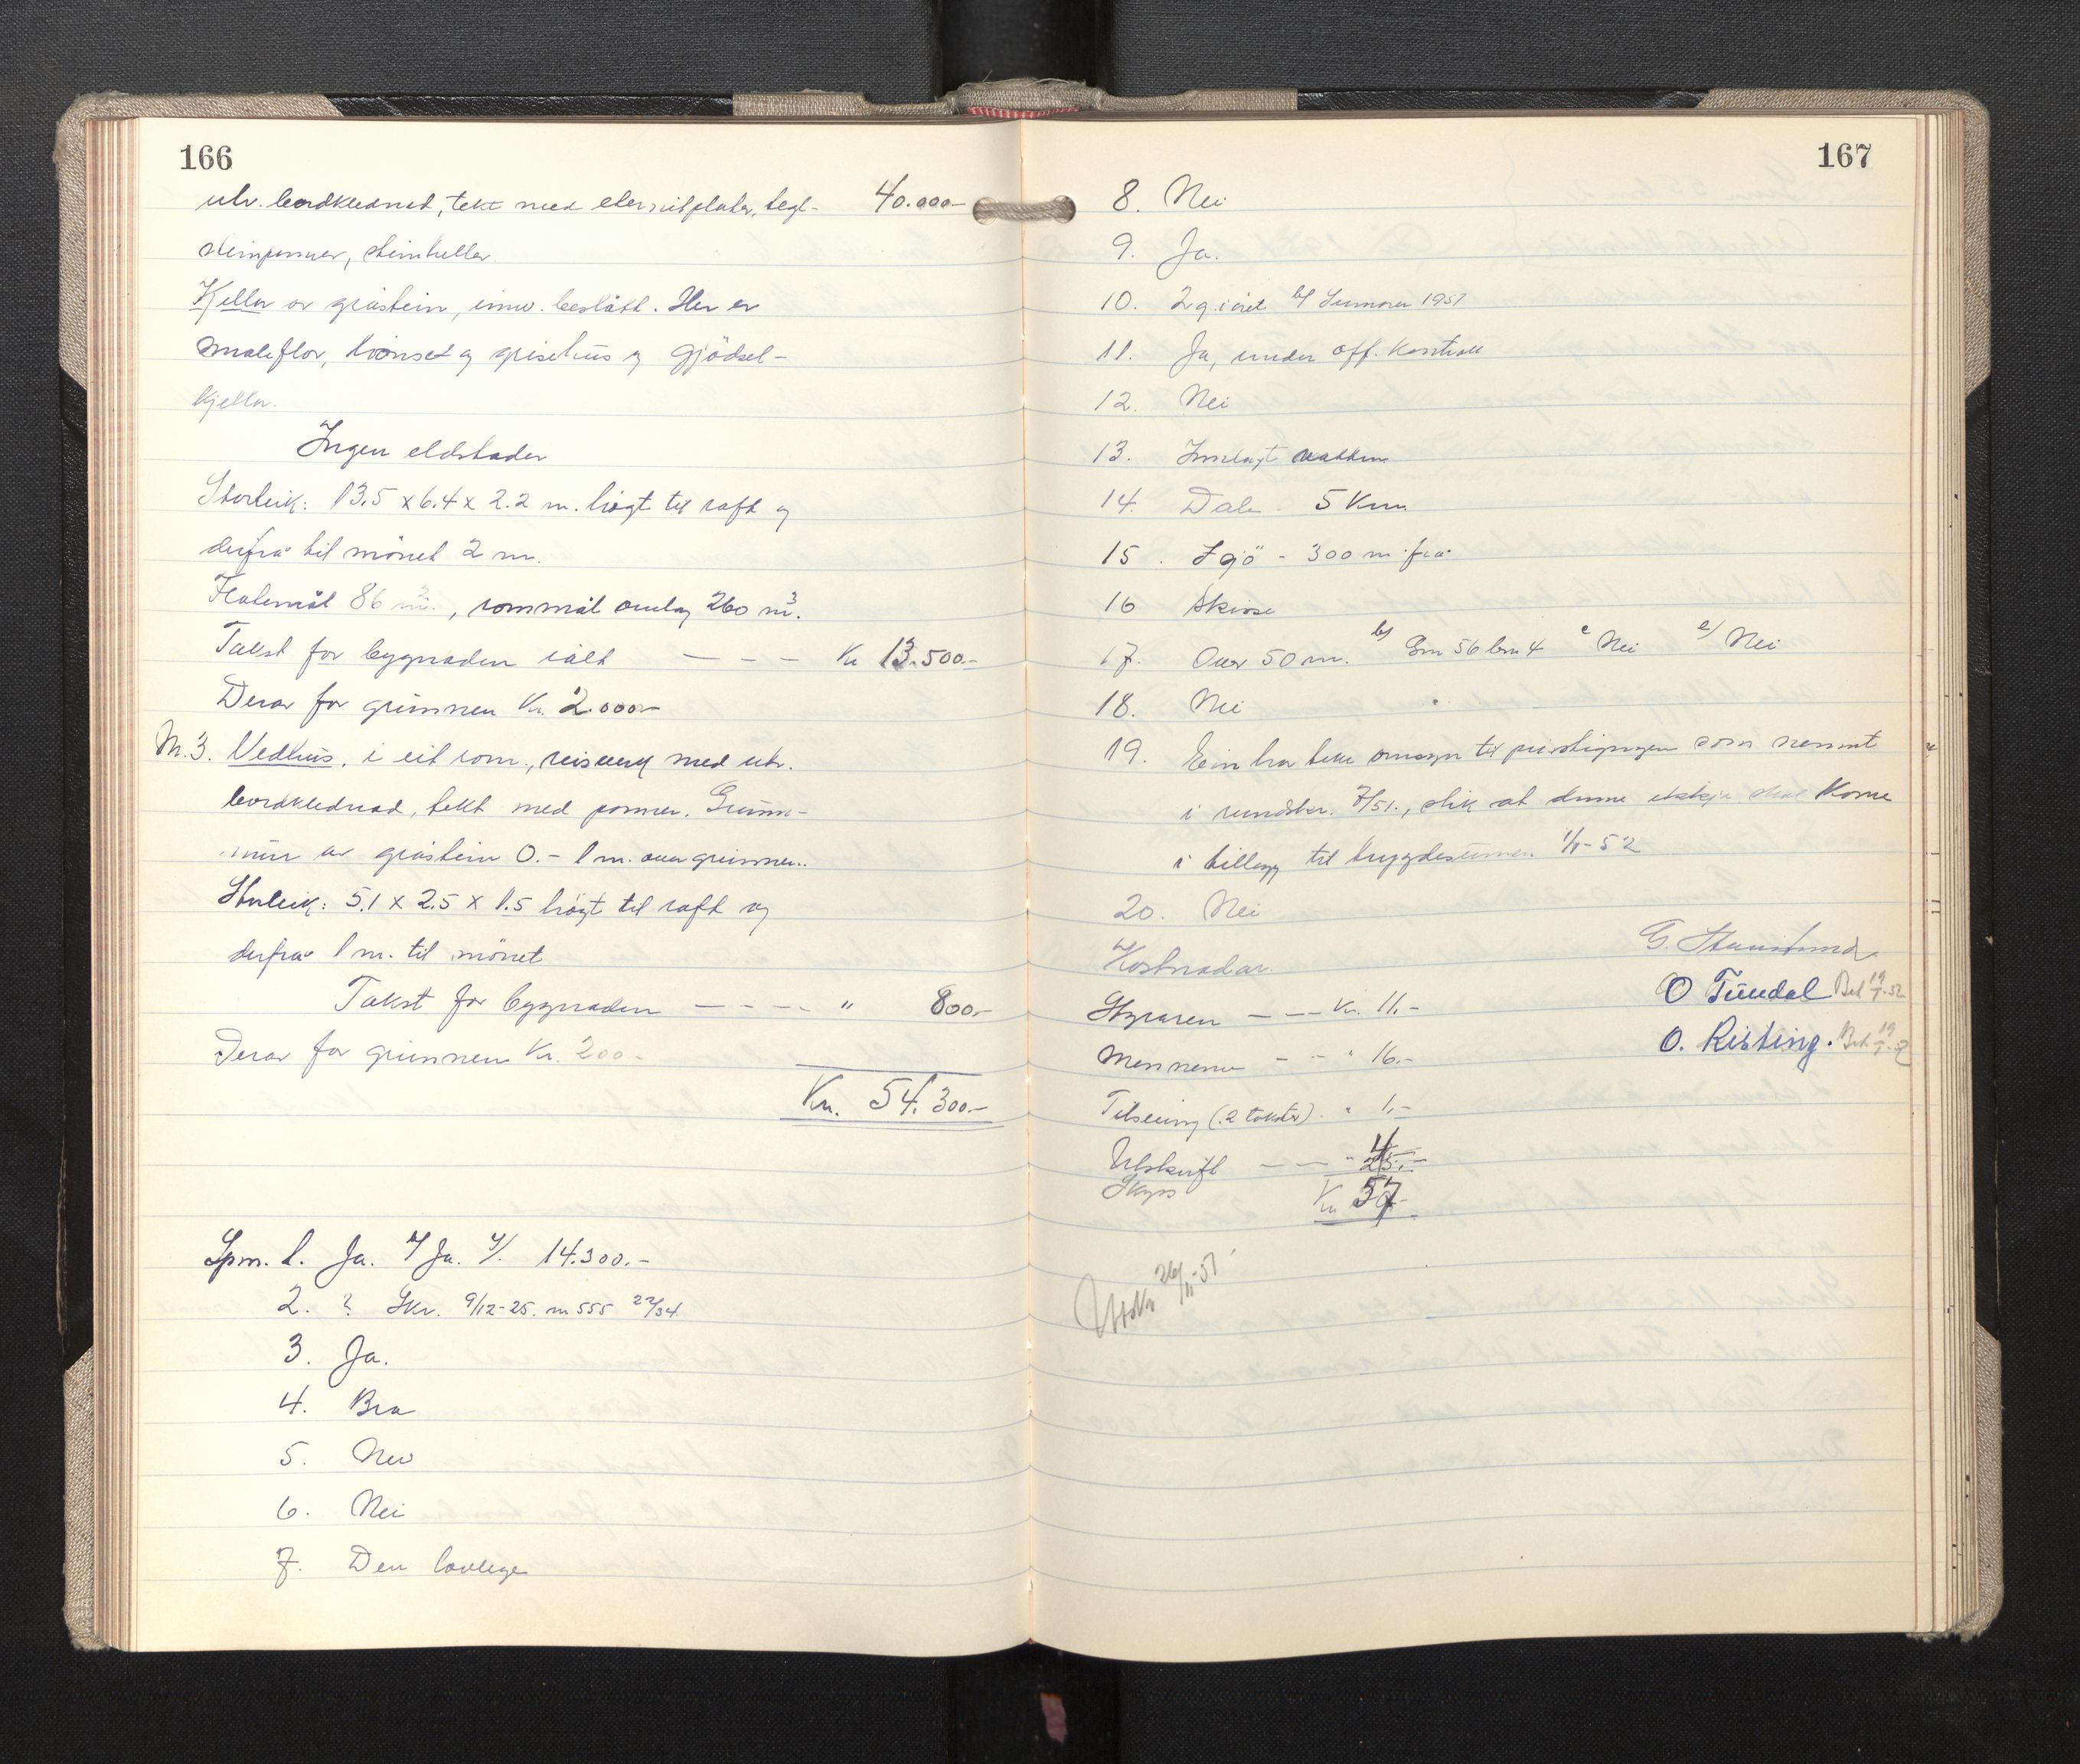 166
utv. bordkledned, tekt med eternitplater, tegl- 40.000-
steinpanner, steinheller
Kjellar av gråstein, innv. beslått. Her er
smaleflor, og grisehus og gjödsel-
kjellar.
Ingen eldstader
Storleik: 13.5 x 6.4 x 2.2 m. högt til raft og
derfrå til mönet 2 m.
Flatemål 86 m². , rommål omlag 260 m³.
Takst for bygnaden ialt — — — Kr 13.500.-
Derav for grunnen Kr. 2.000-
M.3. Vedhus, i eit rom, reisverk med utv.
bordklednad, tekt med panner. Grunn-
mur av gråstein 0.- 1 m. over grunnen.
Storleik: 5.1 x 2.5 x 1.5 högt til raft og
derfrå 1 m. til mönet
Takst for bygnaden — — — - " 800.-
Derav for grunnen Kr. 200.-
Kr. 54.300.-
Spm. 1. Ja. Ja. 14.300.-
2. ? Skr. 9/12-25. m 555 22/34
3. Ja.
4. Bra
5. Nei
6. Nei
7. Den lovlege
167
8. Nei
9. Ja.
10. 2 g. i året b/ Sumaren 1951
11. Ja, under off. kontroll
12. Nei
13. Innlagt vatten
14. Dale - 5 Km
15. Sjö - 300 m frå
16 Skisse
17. Over 50 m. b/ Gnr 56 bnr 4 c Nei e/ Nei
18. Nei
19. Ein har teke omsyn til prisstigingen som nemnt
i rundskr. 7/51., slik at denne ikkje skal kome
i tillegg til trygdesummen 1/1-52
20. Nei
Kostnadar. G.
Styraren — — — Kr. 11.-
O Tundal Bet 19/1-52
Mennene - - " 16.-
O. Risting. Bet 19/1-52
Tilseing (2 takster) " 1.-
Utskrift — — " 4.-
Skyss 25.-
Kr 57
Utskr 26/11-51